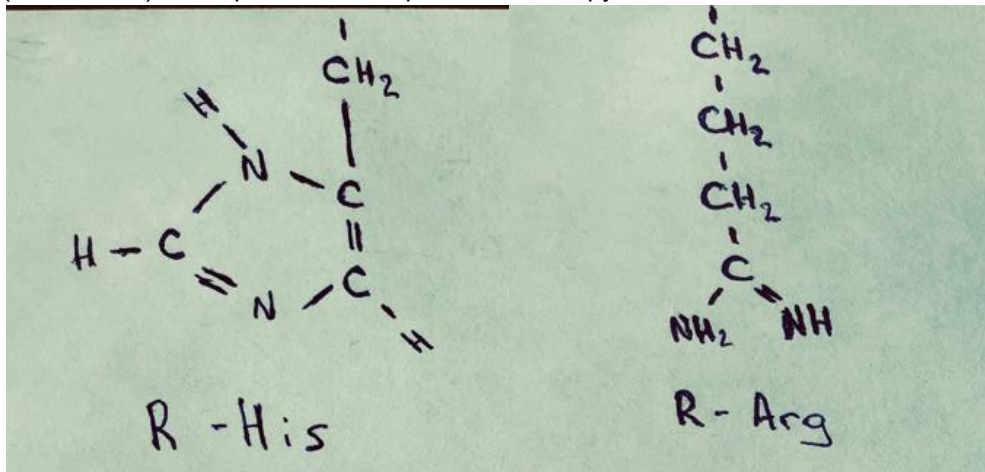 CH₂
H
N – C
H – C
N
C
H
R - His
CH₂
CH₂
CH₂
C
NH₂ NH
R - Arg